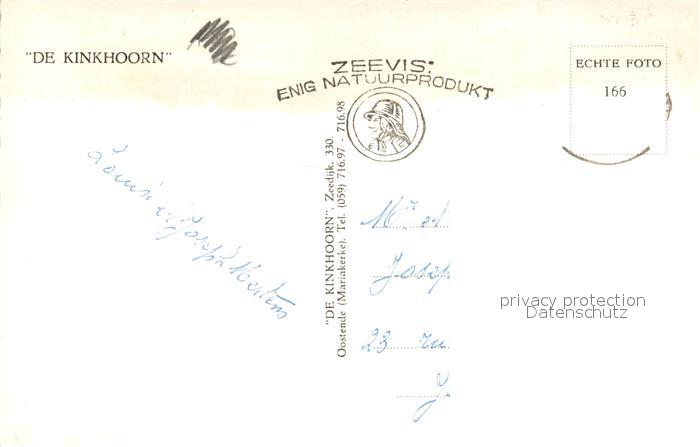 "DE KINKHOORN"
ZEEVIS:
ENIG NATUURPRODUKT
ECHTE FOTO
166
"DE KINKHOORN", Zeedijk, 330.
Oostende (Mariakerke). Tel. (059) 716.97 - 716.98
Joseph Mertens
Mr et
Josep
23 ru
J
privacy protection
Datenschutz